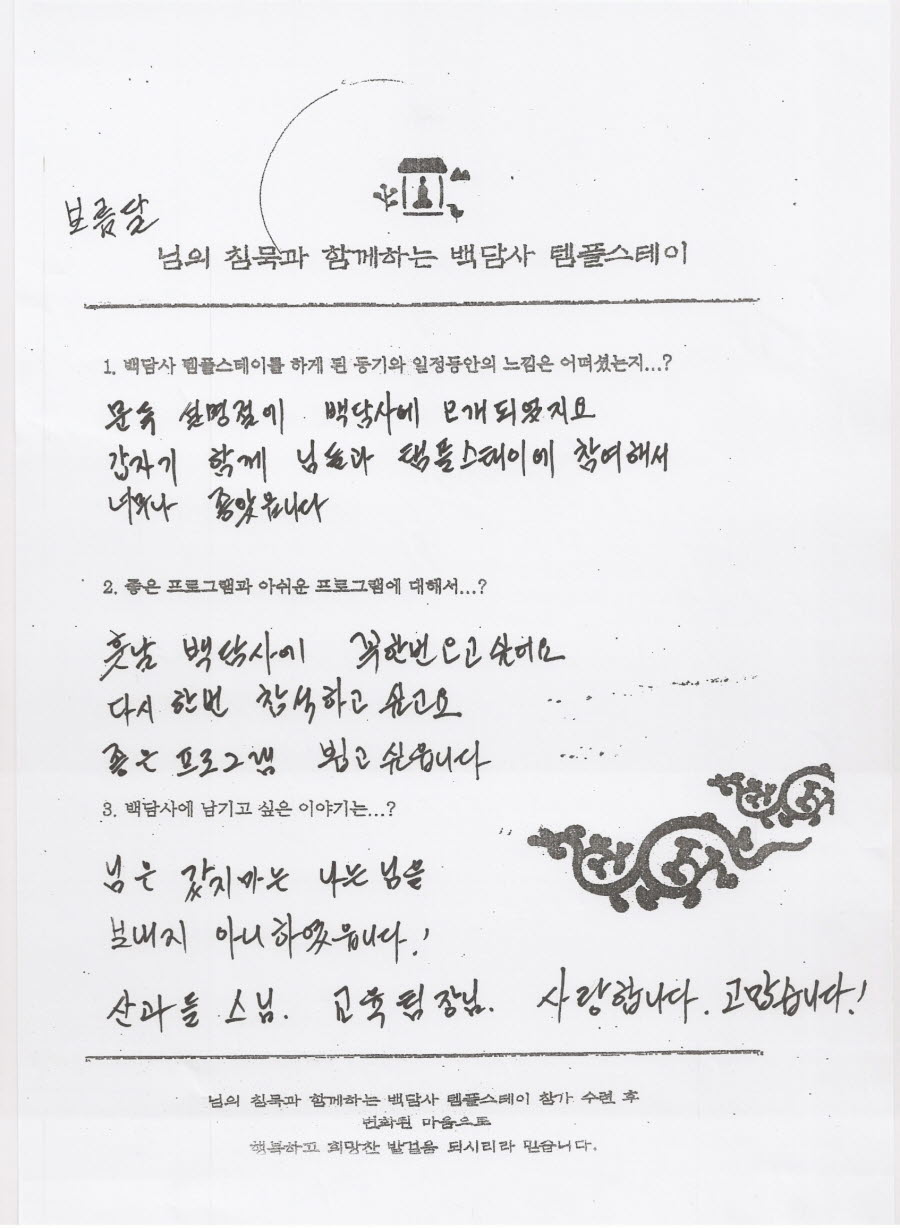 보름달
님의 침묵과 함께하는 백담사 템플스테이
1. 백담사 템플스테이를 하게 된 동기와 일정동안의 느낌은 어떠셨는지...?
백담사에 오게되었지요
갑자기 함께 님들과 템플스테이에 참여해서
너무나 좋았읍니다
2. 좋은 프로그램과 아쉬운 프로그램에 대해서...?
훗날 백담사에 꼭한번 오고 싶어요
다시 한번 참석하고 싶고요
좋은 프로그램 뵙고 싶읍니다
3. 백담사에 남기고 싶은 이야기는...?
님은 갔지마는 나는 님을
보내지 아니하였읍니다!
산과들 스님. 교육팀장님. 사랑합니다. 고맙습니다!
님의 침묵과 함께하는 백담사 템플스테이 참가 수련 후
변화된 마음으로
행복하고 희망찬 발걸음 되시리라 믿습니다.